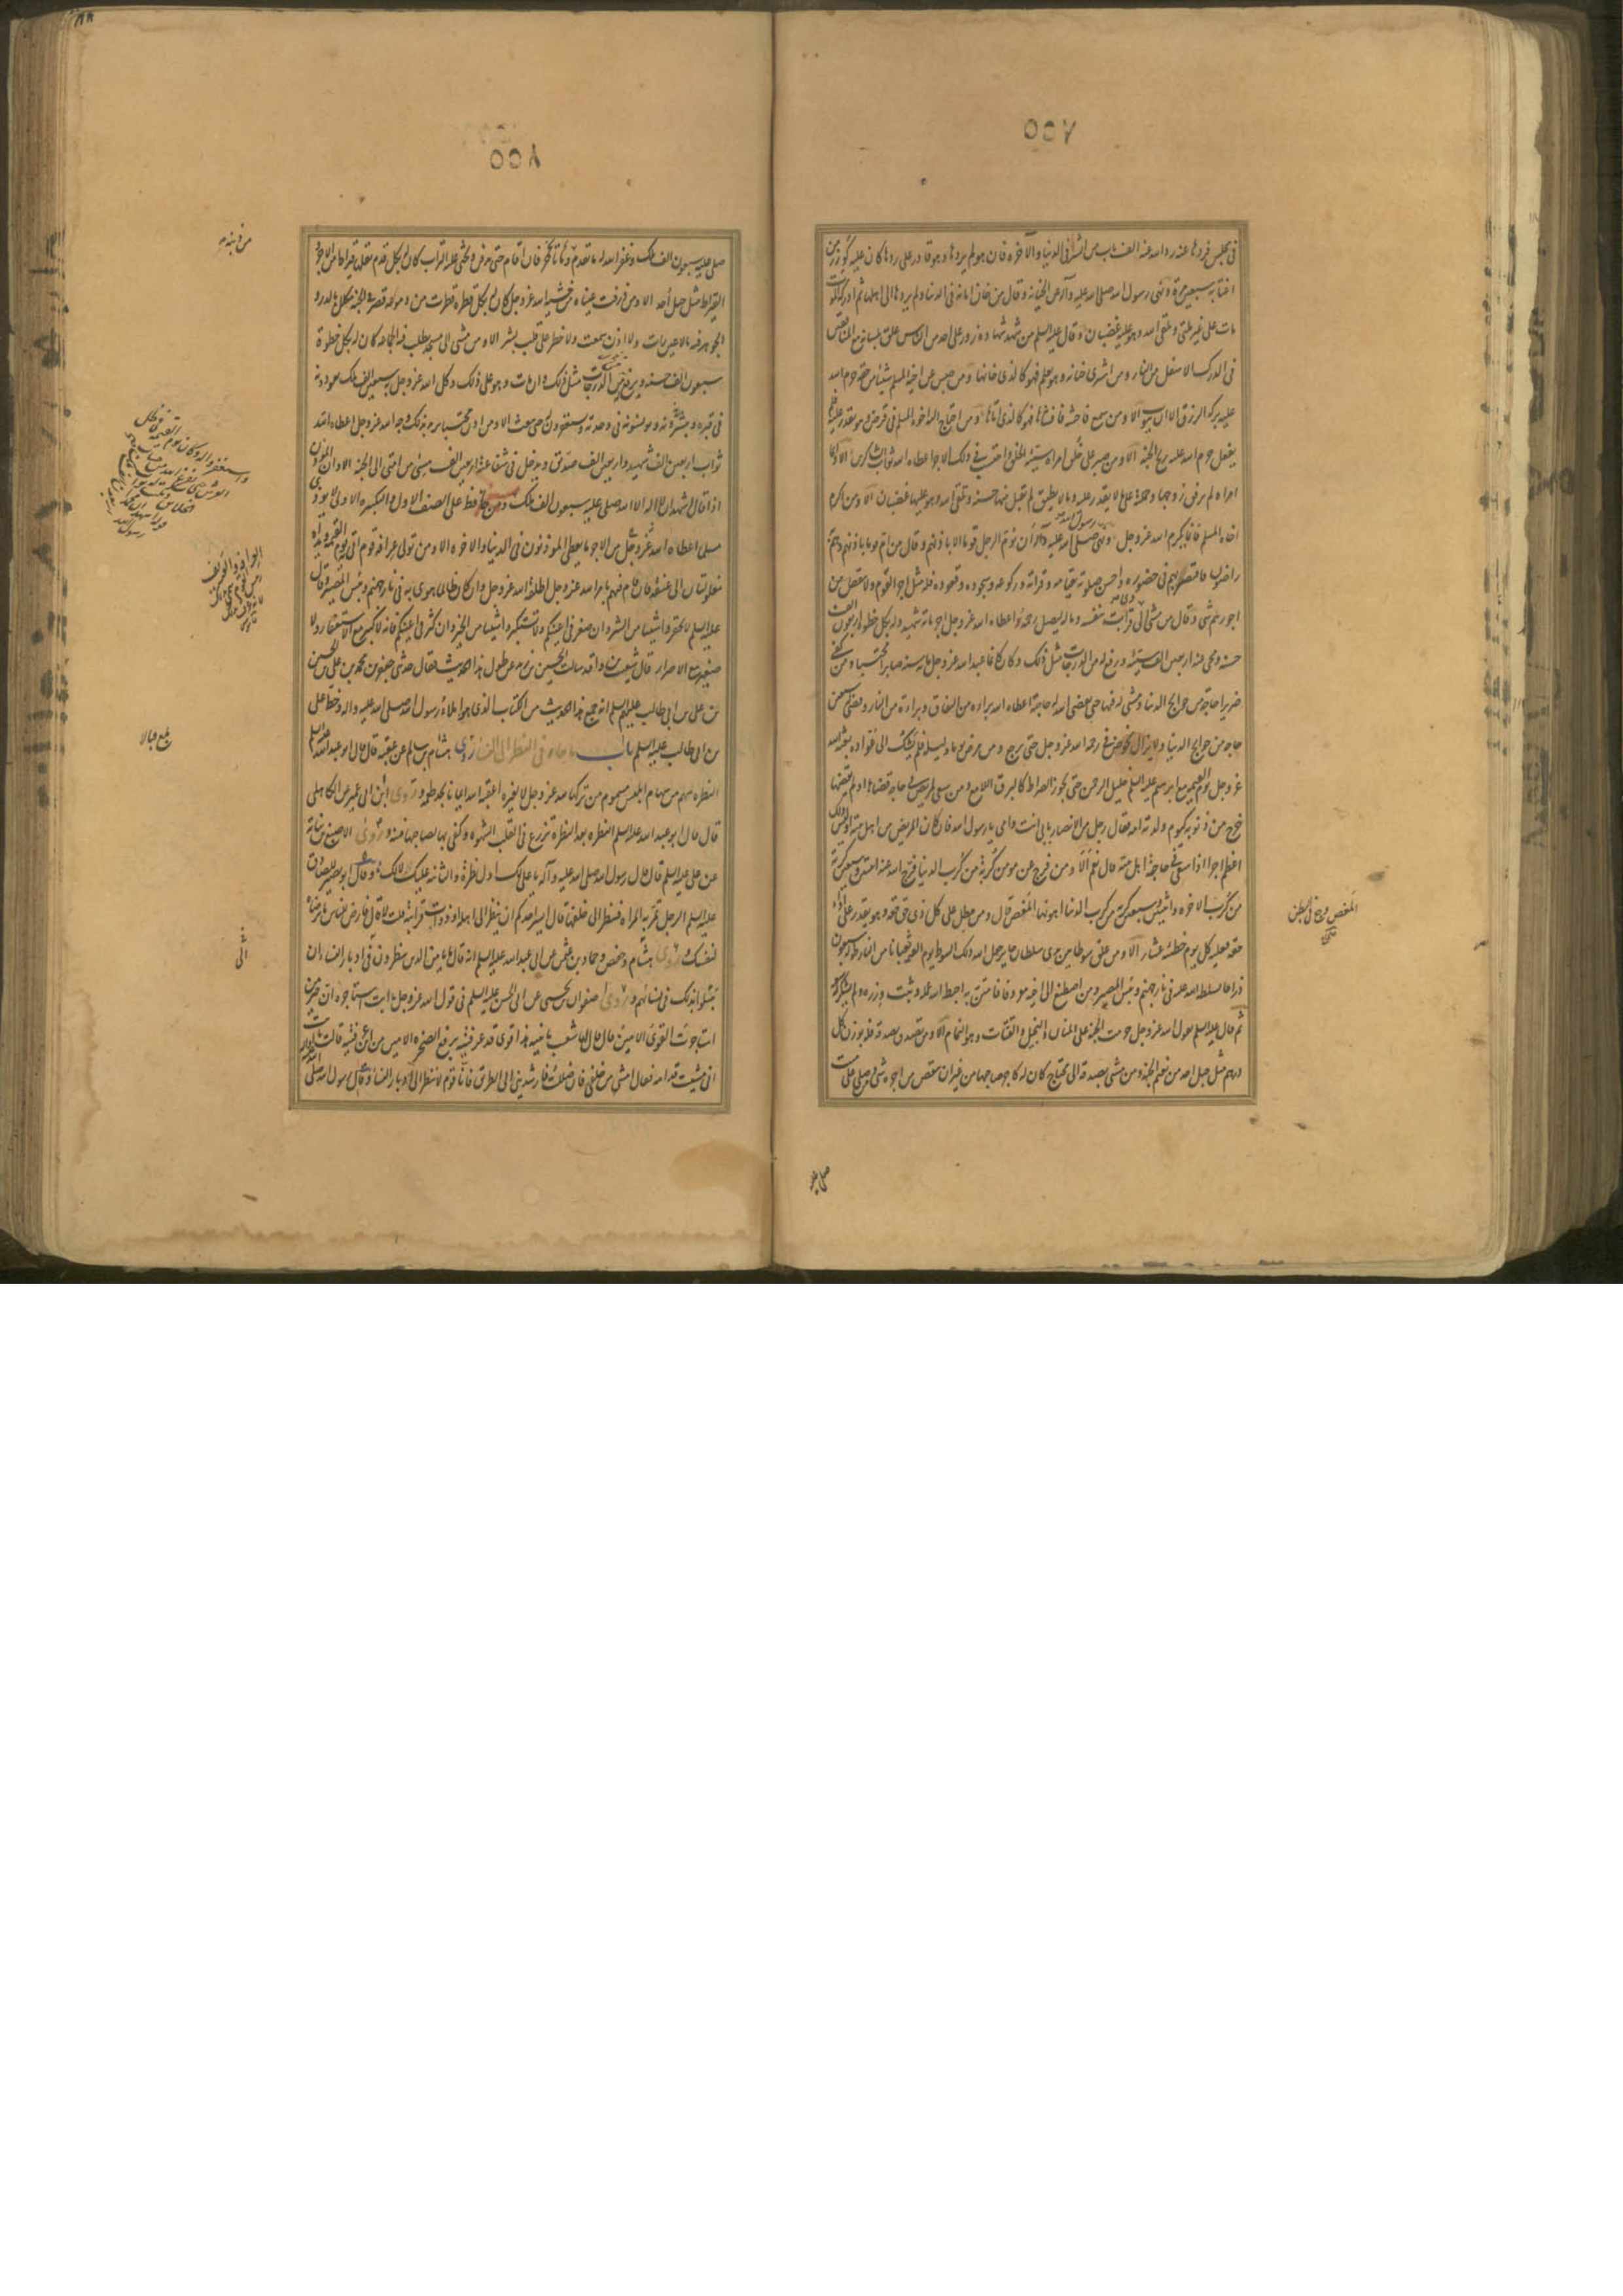 ٨٥٥
فی مجلس فردها عنه رد الله عنه الف باب من الشر فی الدنیا والآخره فان هو لم یردها وهو قادر علی ردها کان علیه کوزر من
اغتابه سبعین مرة ونهی رسول الله صلی الله علیه وآله عن الخیانه وقال من خان امانه فی الدنیا ولم یردها الی اهلها ثم ادرکه الموت
مات علی غیر ملتی ویلقی الله وهو علیه غضبان وقال علیه السلم من شهد شهاده زور علی احد من الناس علق بلسانه مع المنافقین
فی الدرک الاسفل من النار ومن اشتری خیانه وهو یعلم فهو کالذی خانها ومن حبس عن اخیه المسلم شیئا من حقه حرم الله
علیه برکه الرزق الا ان یتوب الا ومن سمع فاحشه فافشاها فهو کالذی اتاها ومن احتاج الیه اخوه المسلم فی قرض وهو یقدر علیه فلم
یفعل حرم الله علیه ریح الجنه الا ومن صبر علی خلق امراه سیئة الخلق واحتسب فی ذلک الاجر اعطاه الله ثواب الشاکرین الا وایما
امراه لم ترفق بزوجها وحملته علی ما لا یقدر علیه وما لا یطیق لم تقبل منها حسنه وتلقی الله وهو علیها غضبان الا ومن اکرم
اخاه المسلم فانما یکرم الله عز وجل ونهی رسول الله صلی الله علیه وآله ان یؤم الرجل قوما الا باذنهم وقال من ام قوما باذنهم وهم به
راضون فاقتصد بهم فی حضوره واحسن صلوته بقیامه وقرائته ورکوعه وسجوده وقعوده فله مثل اجر القوم ولا ینقص من
اجورهم شی وقال من مشی الی ذی قرابت بنفسه وماله لیصل رحمه اعطاه الله عز وجل اجر مائة شهید وله بکل خطوه اربعون الف
حسنه ومحی عنه اربعین الف سیئه ورفع له من الدرجات مثل ذلک وکان کانما عبد الله عز وجل مایه سنه صابرا محتسبا ومن کفی
ضریرا حاجة من حوایج الدنیا ومشی له فیها حتی یقضی الله له حاجته اعطاه الله براءه من النفاق وبراءة من النار وقضی له سبعین
حاجه من حوایج الدنیا ولا یزال یخوض فی رحمه الله عز وجل حتی یرجع ومن مرض یوما ولیله فلم یشک الی عواده بعثه الله
عز وجل یوم القیمه مع ابرهیم علیه السلم خلیل الرحمن حتی یجوز الصراط کالبرق اللامع ومن سعی لمریض فی حاجه قضاها او لم یقضها
خرج من ذنوبه کیوم ولدته امه فقال رجل من الانصار بابی انت وامی یا رسول الله فان کان المریض من اهل بیته اولیس ذلک
اعظم اجرا اذا سعی فی حاجة اهل بیته قال نعم الا ومن فرج عن مومن کربة من کرب الدنیا فرج الله عنه اثنتین وسبعین کربة
من کرب الاخره واثنتین وسبعین کربة من کرب الدنیا اهونها المغص قال ومن مطل علی کل ذی حق حقه وهو یقدر علی اداء
حقه فعلیه کل یوم خطیئه عشار الا ومن علق سوطا بین یدی سلطان جایر جعل الله ذلک السوط یوم القیمه ثعبانا من النار طوله سبعون
ذراعا یسلطه الله علیه فی نار جهنم وبئس المصیر ومن اصطنع الی اخیه معروفا فامتن به احبط الله عمله وثبت وزره ولم یشکر له سعیه
ثم قال علیه السلم یقول الله عز وجل حرمت الجنه علی المنان والبخیل والقتات وهو النمام الا ومن تصدق بصدقه فله بوزن کل
درهم مثل جبل احد من نعیم الجنه ومن مشی بصدقه الی محتاج کان له کاجر صاحبها من غیر ان ینقص من اجره شی ومن صلی علی میت
المغص وجع فی البطن
صلی علیه
٨٥٥
صلی علیه سبعون الف ملک وغفر الله له ما تقدم من ذنبه وما تاخر فان اقام حتی یدفن ویحثی علیه التراب کان له بکل قدم نقلها قیراط من الاجر و
القیراط مثل جبل أحد الا ومن ذرفت عیناه من خشیة الله عز وجل کان له بکل قطره قطرت من دموعه قصر فی الجنه مکلل بالدر و
الجوهر فیه ما لا عین رات ولا اذن سمعت ولا خطر علی قلب بشر الا ومن مشی الی مسجد یطلب فیه الجماعه کان له بکل خطوة
سبعون الف حسنه ویرفع له من الدرجات مثل ذلک وان مات وهو علی ذلک وکل الله عز وجل به سبعین الف ملک یعودونه
فی قبره ویبشرونه ویونسونه فی وحدته ویستغفرون له حتی یبعث الا ومن اذن محتسبا یرید بذلک وجه الله عز وجل اعطاه الله
ثواب اربعین الف شهید واربعین الف صدیق ویدخل فی شفاعته اربعین الف مسیئ من امتی الی الجنه الا وان الموذن
اذا قال اشهد ان لا اله الا الله صلی علیه سبعون الف ملک ومن حافظ علی الصف الاول والتکبیره الاولی لا یوذی
مسلما اعطاه الله عز وجل من الاجر ما یعطی الموذنون فی الدنیا والاخره الا ومن تولی عرافه قوم اتی یوم القیمه ویداه
مغلولتان الی عنقه فان قام فیهم بامر الله عز وجل اطلقه الله عز وجل وان کان ظالما هوی به فی نار جهنم وبئس المصیر وقال
علیه السلم لا تحقروا شیئا من الشر وان صغر فی اعینکم ولا تستکثروا شیئا من الخیر وان کثر فی اعینکم فانه لا کبیر مع الاستغفار ولا
صغیر مع الاصرار قال شعیب بن واقد سالت الحسین بن زید عن طول هذا الحدیث فقال حدثنی جعفر بن محمد بن علی بن الحسین
بن علی بن ابی طالب علیهم السلم انه جمع هذا الحدیث من الکتاب الذی هو املاء رسول الله صلی الله علیه واله وخط علی
بن ابی طالب علیه السلم باب ما جاء فی النظر الی النساء روی هشام بن سالم عن عقبه قال قال ابو عبد الله علیه السلم
النظره سهم من سهام ابلیس مسموم من ترکها لله عز وجل لا لغیره اعقبه الله ایمانا یجد طعمه وروی ابن ابی عمیر عن الکاهلی
قال قال ابو عبد الله علیه السلم النظره بعد النظرة تزرع فی القلب الشهوه وکفی بها لصاحبها فتنه وروی الاصبغ بن نباته
عن علی علیه السلم قال قال رسول الله صلی الله علیه وآله یا علی لک اول نظرة والثانیه علیک لا لک وقال ابو بصیر للصادق
علیه السلم الرجل تمر به المراه فینظر الی خلفها قال ایسر احدکم ان ینظر الی اهله وذات قرابته قلت لا قال فارض للناس ما ترضاه
لنفسک وروی هشام وحفص وحماد بن عثمن عن ابی عبد الله علیه السلم انه قال ما یامن الذین ینظرون فی ادبار النساء ان
یبتلوا بذلک فی نسائهم وروی صفوان بن یحیی عن ابی الحسن علیه السلم فی قول الله عز وجل یا ابت استاجره ان خیر من
استاجرت القوی الامین قال قال لها شعیب یا بنیه هذا قوی قد عرفتیه برفع الصخره الامین من این عرفتیه قالت یا ابت
انی مشیت قدامه فقال امشی من خلفی فان ضللت فارشدینی الی الطریق فانا قوم لا ننظر الی ادبار النساء وقال رسول الله صلی